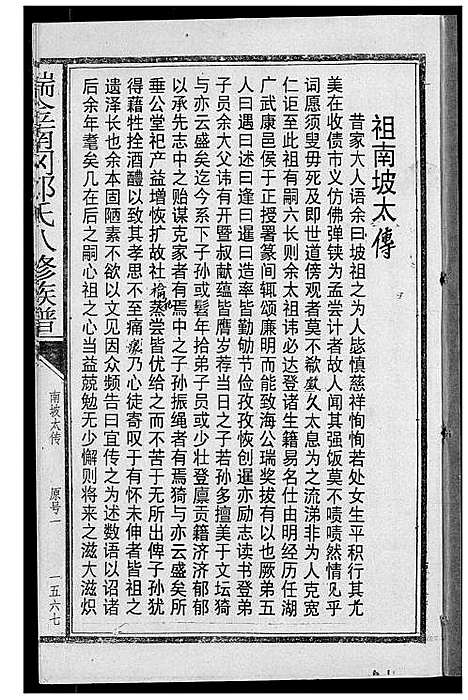 祖南坡太傳
昔家大人语余曰坡祖之为人毖慎慈祥恂恂若处女生平积行其尤
美在收债市义仿佛弹铗为孟尝计者故人闻其强饭莫不啧啧然情见乎
词愿须臾毋死及即世道傍观者莫不欷歔久太息为之流涕非为夫人克宽
仁讵至此祖有嗣六长则余太祖讳必达登诸生籍易名仕由明经历任湖
广武康邑侯于正授署篆间辄颂廉明而能致海公瑞奖拔有以也厥弟五
人曰遇曰述曰逢曰暹曰造率皆勤劬节俭孜孜恢创暹亦励志读书登弟
子员余大父讳有开暨叔献蕴皆膺岁荐当日之子若孙多擅美于文坛猗
与亦云盛矣迄今系下子孙或髫年拾弟子员或少壮登廪贡籍济济郁郁
以承先志中之贻谋克家者有焉中之子孙振绳者有焉猗与亦云盛矣所
垂公堂祀产益增恢扩故社禴祀蒸尝皆优给之而不苦于无所出俾子孙犹
得藉牲拴酒醴以致其孝思不至痛瘝乃心徒寄叹于有怀未伸者皆祖之
遗泽长也余本固陋素不欲以文见因众频告曰宜传之为述数语以诏诸
后余年耄矣几在后之嗣心祖之心当益兢勉无少懈则将来之滋大滋炽
瑞金南冈郭氏八修族谱
南坡太传
原号一
一五六七